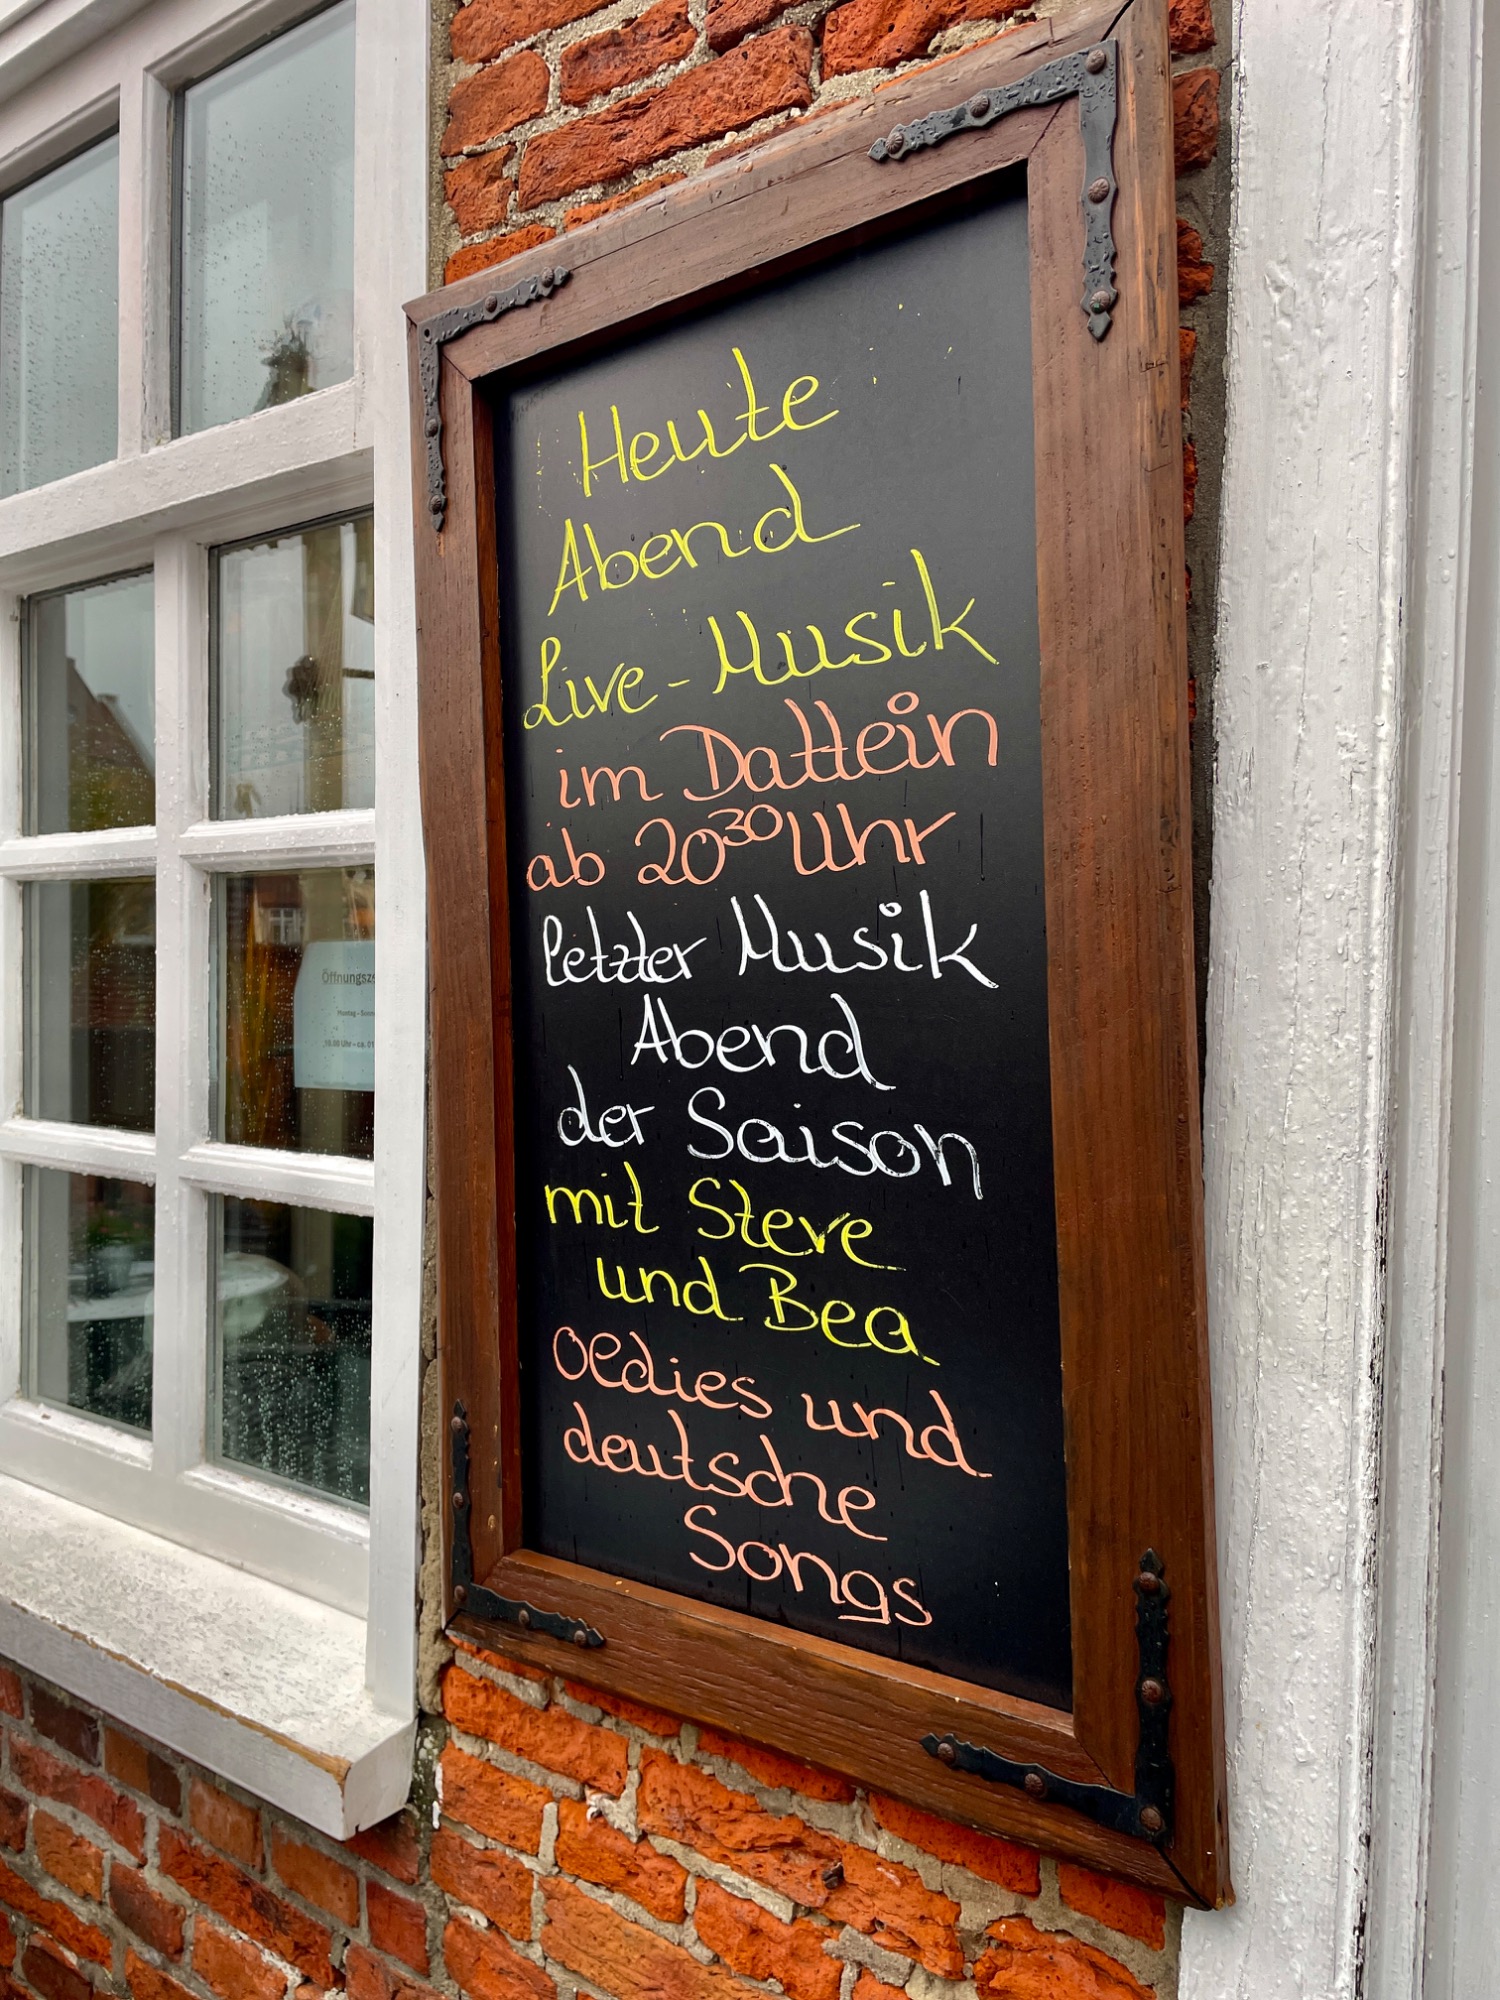 Heute
Abend
Live-Musik
im Dattein
ab 20³⁰ Uhr
letzter Musik
Abend
der Saison
mit Steve
und Bea
Oldies und
deutsche
Songs
Öffnungsze
Montag - Sonn
10.00 Uhr - ca. 01